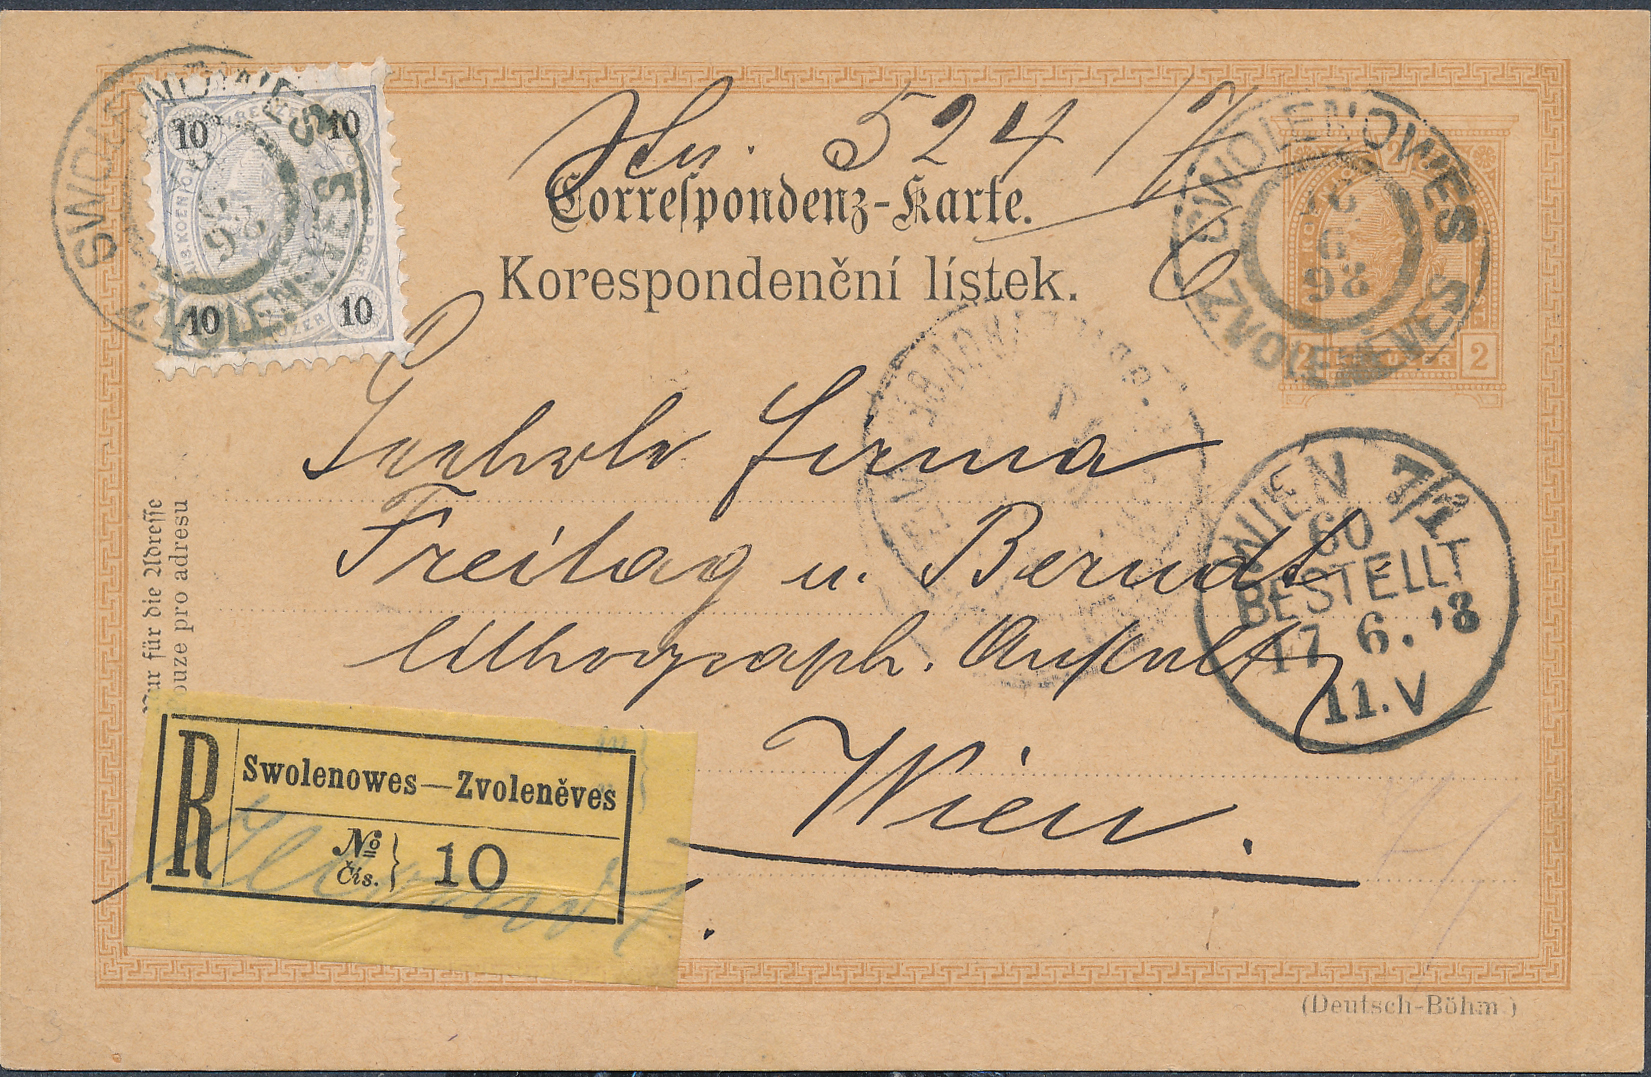 No. 524/7
Correspondenz-Karte.
Korespondenční lístek.
SWOLENOWES
ZVOLENĚVES
10 10
10 10
SWOLENOWES
ZVOLENĚVES
2 KREUZER 2
Löbliche Firma
Freitag u. Berndt
lithograph. Anstalt
Wien.
WIEN 7/1
60
BESTELLT
17 6. '98
11.V
Nur für die Adresse
Pouze pro adresu
R
Swolenowes—Zvoleněves
No
Čís. } 10
(Deutsch-Böhm.)